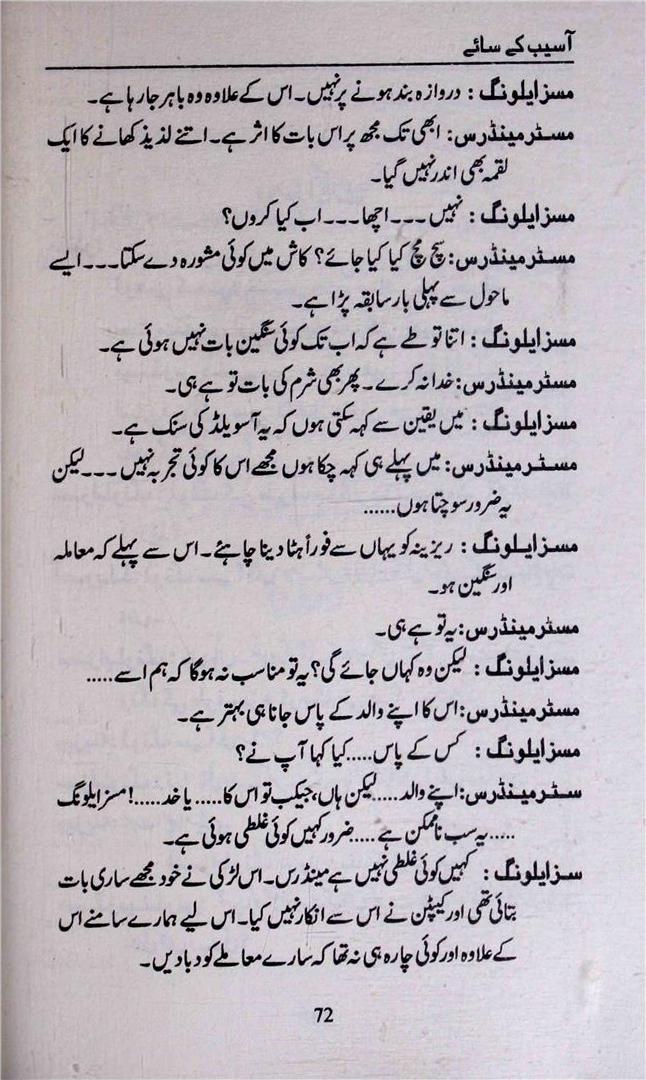 آسیب کے سائے
مسز ایلونگ : دروازہ بند ہونے پر نہیں۔ اس کے علاوہ وہ باہر جا رہا ہے۔
مسٹر مینڈرس: ابھی تک مجھ پر اس بات کا اثر ہے۔ اتنے لذیذ کھانے کا ایک
لقمہ بھی اندر نہیں گیا۔
مسز ایلونگ : نہیں ۔۔۔ اچھا ۔۔۔ اب کیا کروں؟
مسٹر مینڈرس: سچ مچ کیا کیا جائے؟ کاش میں کوئی مشورہ دے سکتا ۔۔۔ ایسے
ماحول سے پہلی بار سابقہ پڑا ہے۔
مسز ایلونگ : اتنا تو طے ہے کہ اب تک کوئی سنگین بات نہیں ہوئی ہے۔
مسٹر مینڈرس: خدا نہ کرے ۔ پھر بھی شرم کی بات تو ہے ہی۔
مسز ایلونگ : میں یقین سے کہہ سکتی ہوں کہ یہ آسویلڈ کی سنک ہے۔
مسٹر مینڈرس: میں پہلے ہی کہہ چکا ہوں مجھے اس کا کوئی تجربہ نہیں ۔۔۔ لیکن
یہ ضرور سوچتا ہوں......
مسز ایلونگ : ریزینہ کو یہاں سے فوراً ہٹا دینا چاہئے۔ اس سے پہلے کہ معاملہ
اور سنگین ہو۔
مسٹر مینڈرس: یہ تو ہے ہی۔
مسز ایلونگ : لیکن وہ کہاں جائے گی؟ یہ تو مناسب نہ ہوگا کہ ہم اسے.....
مسٹر مینڈرس: اس کا اپنے والد کے پاس جانا ہی بہتر ہے۔
مسز ایلونگ : کس کے پاس.....کیا کہا آپ نے؟
سٹر مینڈرس: اپنے والد.....لیکن ہاں، جیکب تو اس کا.....یا خد.....! مسز ایلونگ
.....یہ سب ناممکن ہے.....ضرور کہیں کوئی غلطی ہوئی ہے۔
سز ایلونگ : کہیں کوئی غلطی نہیں ہے مینڈرس۔ اس لڑکی نے خود مجھے ساری بات
بتائی تھی اور کیپٹن نے اس سے انکار نہیں کیا۔ اس لیے ہمارے سامنے اس
کے علاوہ اور کوئی چارہ ہی نہ تھا کہ سارے معاملے کو دبا دیں۔
72